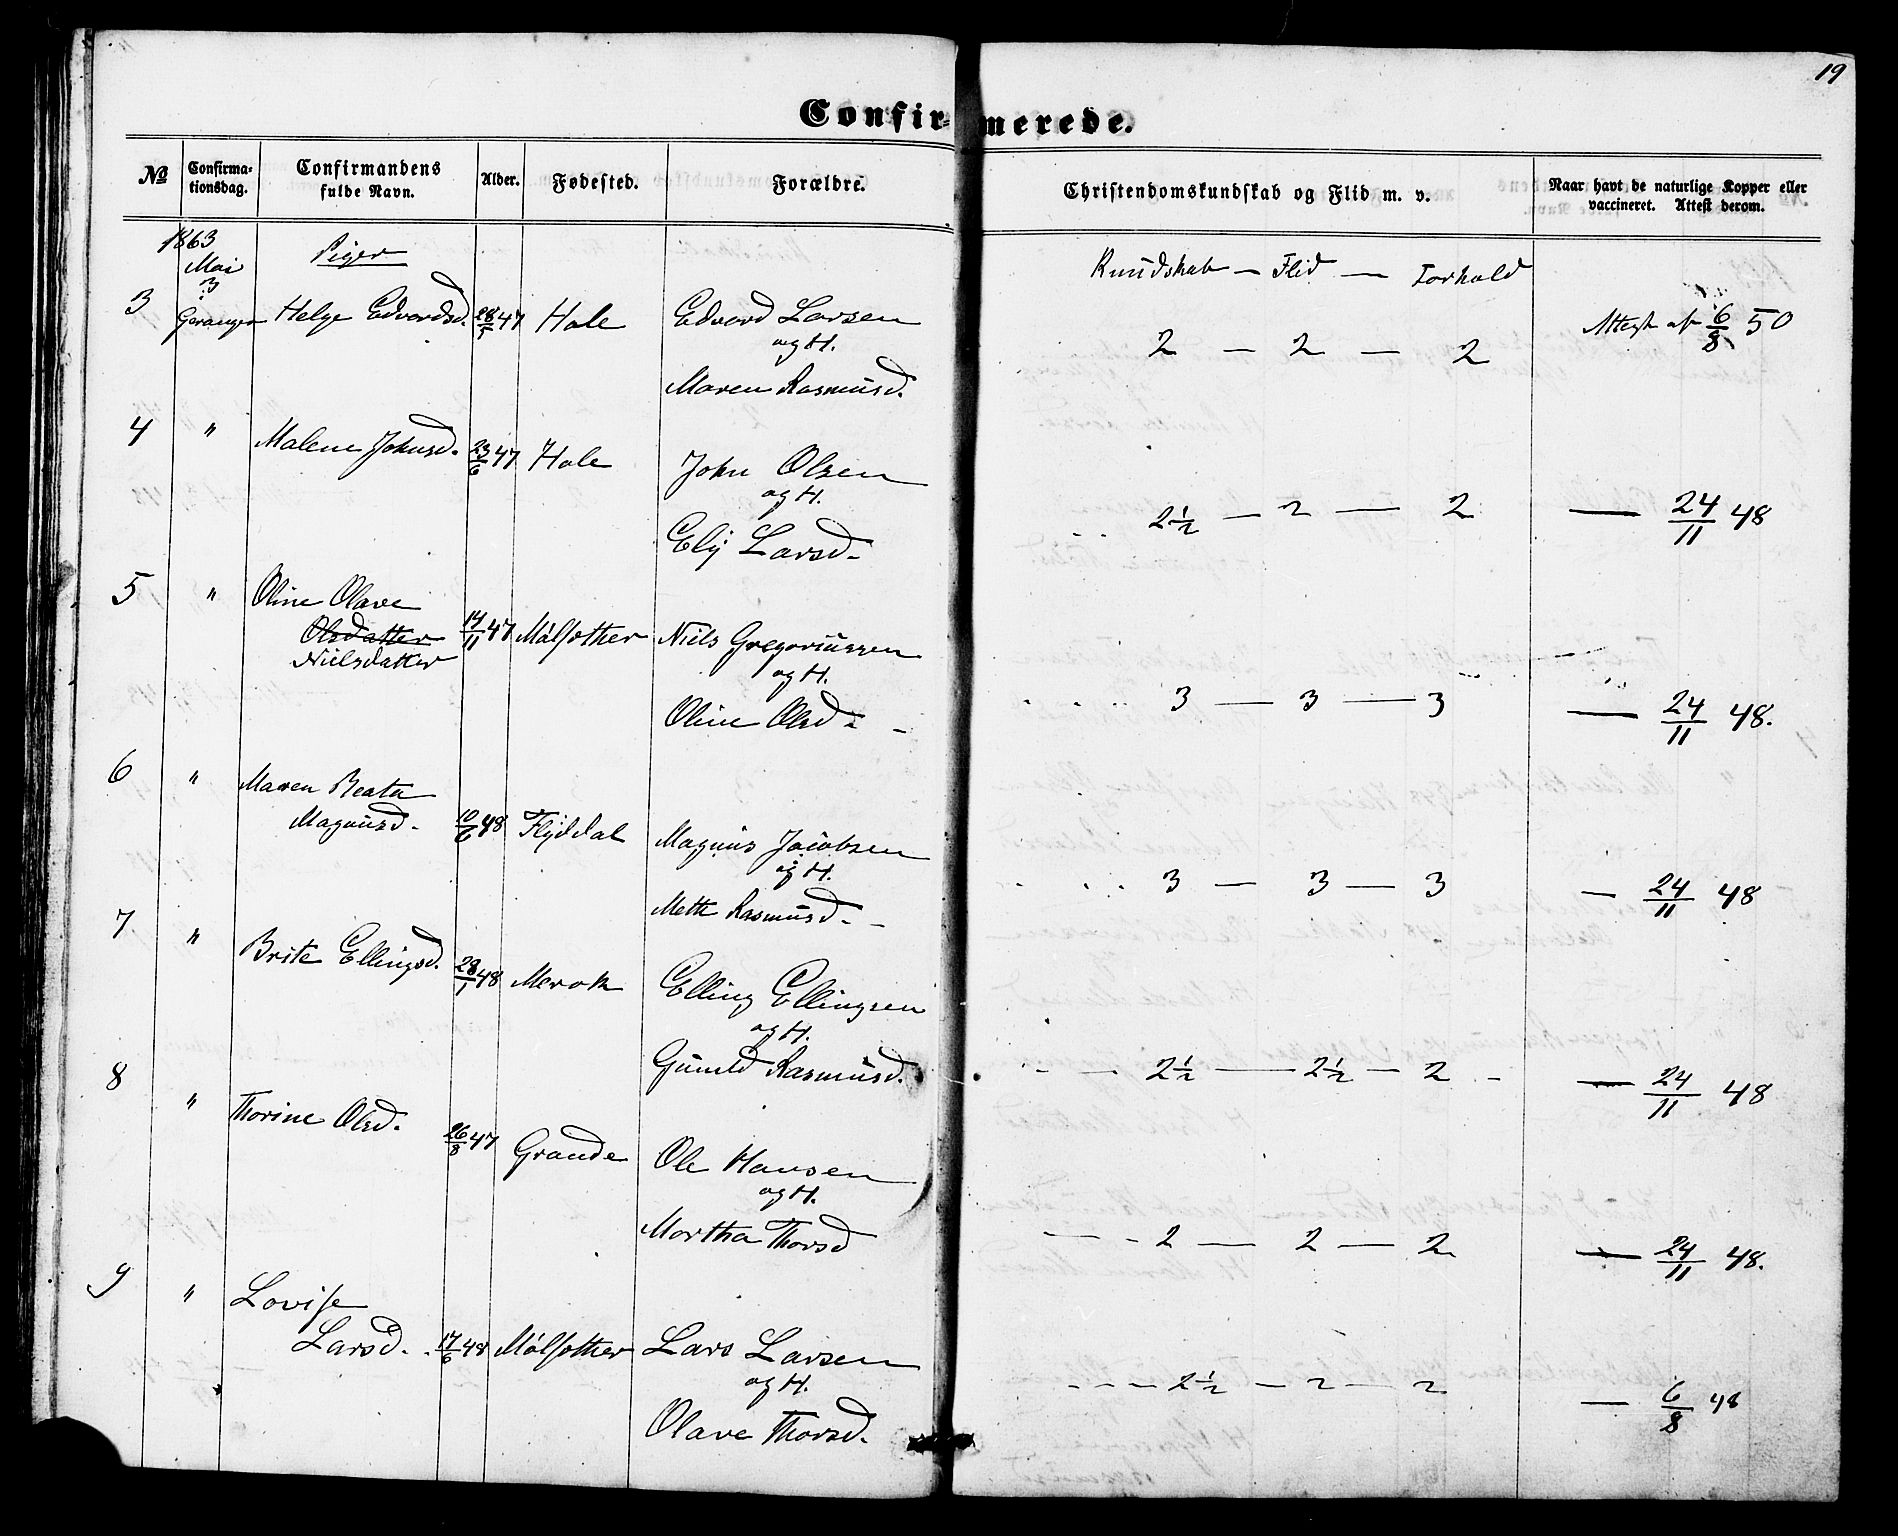 19
Confir-merede.
No
Confirma-
tionsdag.
Confirmandens
fulde Navn.
Alder.
Fødested.
Forældre.
Christendomskundskab og Flid m. v.
Naar havt de naturlige Kopper eller
vaccineret. Attest derom.
1863
Mai
3
Piger
Kundskab — Flid — Forhold
3 Geranger Helge Edvardsd. 28/5 47 Hole Edvard Larsen
og H.
Maren Rasmusd.
2 — 2 — 2 Attest af 6/8 50
4 " Malene Johnsd. 23/6 47 Hole John Olsen
og H.
Elij Larsd.
2½ — 2 — 2 — 24/11 48
5 " Oline Olave
Olsdatter
Nielsdatter
14/11 47 Målsother Niels Gregoriussen
og H.
Oline Olsd.
3 — 3 — 3 — 24/11 48.
6 " Maren Beata
Magnusd. 10/6 48 Flyddal Magnus Jacobsen
og H.
Mette Rasmusd.
3 — 3 — 3 — 24/11 48
7 " Brite Ellingsd. 28/1 48 Merok Elling Ellingsen
og H.
Gunild Rasmusd.
2½ — 2½ — 2 — 24/11 48
8 " Thorine Olsd. 26/8 47 Grande Ole Hansen
og H.
Martha Thorsd
2 — 2 — 2 — 24/11 48.
9 " Lovise
Larsd. 17/6 48 Målsother Lars Larsen
og H.
Olave Thorsd.
2½ — 2 — 2 — 6/8 48